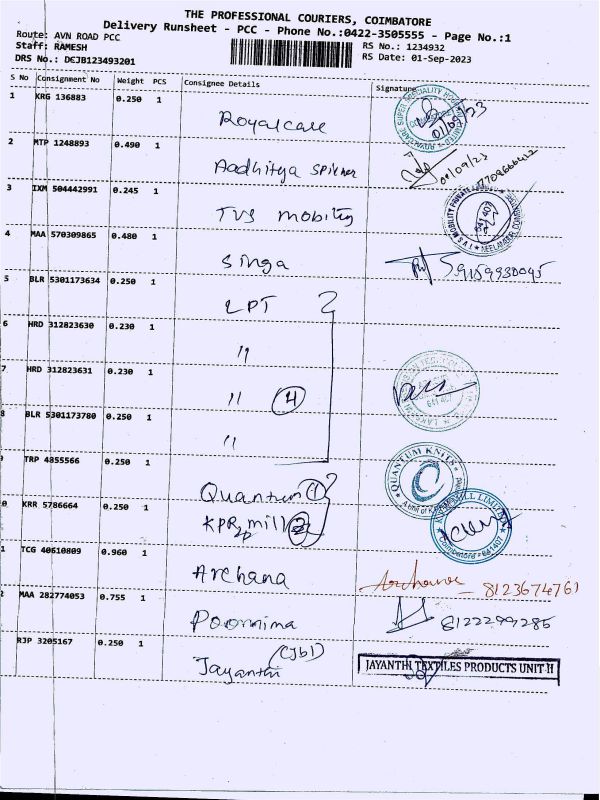 THE PROFESSIONAL COURIERS, COIMBATORE
Delivery Runsheet - PCC - Phone No.:0422-3505555 - Page No.:1
Route: AVN ROAD PCC
RS No.: 1234932
Staff: RAMESH
RS Date: 01-Sep-2023
DRS No.: DCJB123493201
S No Consignment No Weight PCS Consignee Details Signature
1 KRG 136883 0.250 1 Royalcare 01/09/23
2 MTP 1248893 0.490 1 Aadhitya 01/09/23
3 IXM 504442991 0.245 1 TVS mobility
4 MAA 570309865 0.480 1 Singa 9159930045
5 BLR 5301173634 0.250 1 LPT
6 HRD 312823630 0.230 1 "
7 HRD 312823631 0.230 1 " 4
8 BLR 5301173780 0.250 1 "
TRP 4855566 0.250 1 Quantum 1 QUANTUM KNITS
0 KRR 5786664 0.250 1 KPR mill 2
1 TCG 40610809 0.960 1 Archana Archana - 8123674761
2 MAA 282774053 0.755 1 Poornima 8122299285
RJP 3205167 0.250 1 Jayanthi (Jb1) JAYANTHI TEXTILES PRODUCTS UNIT II